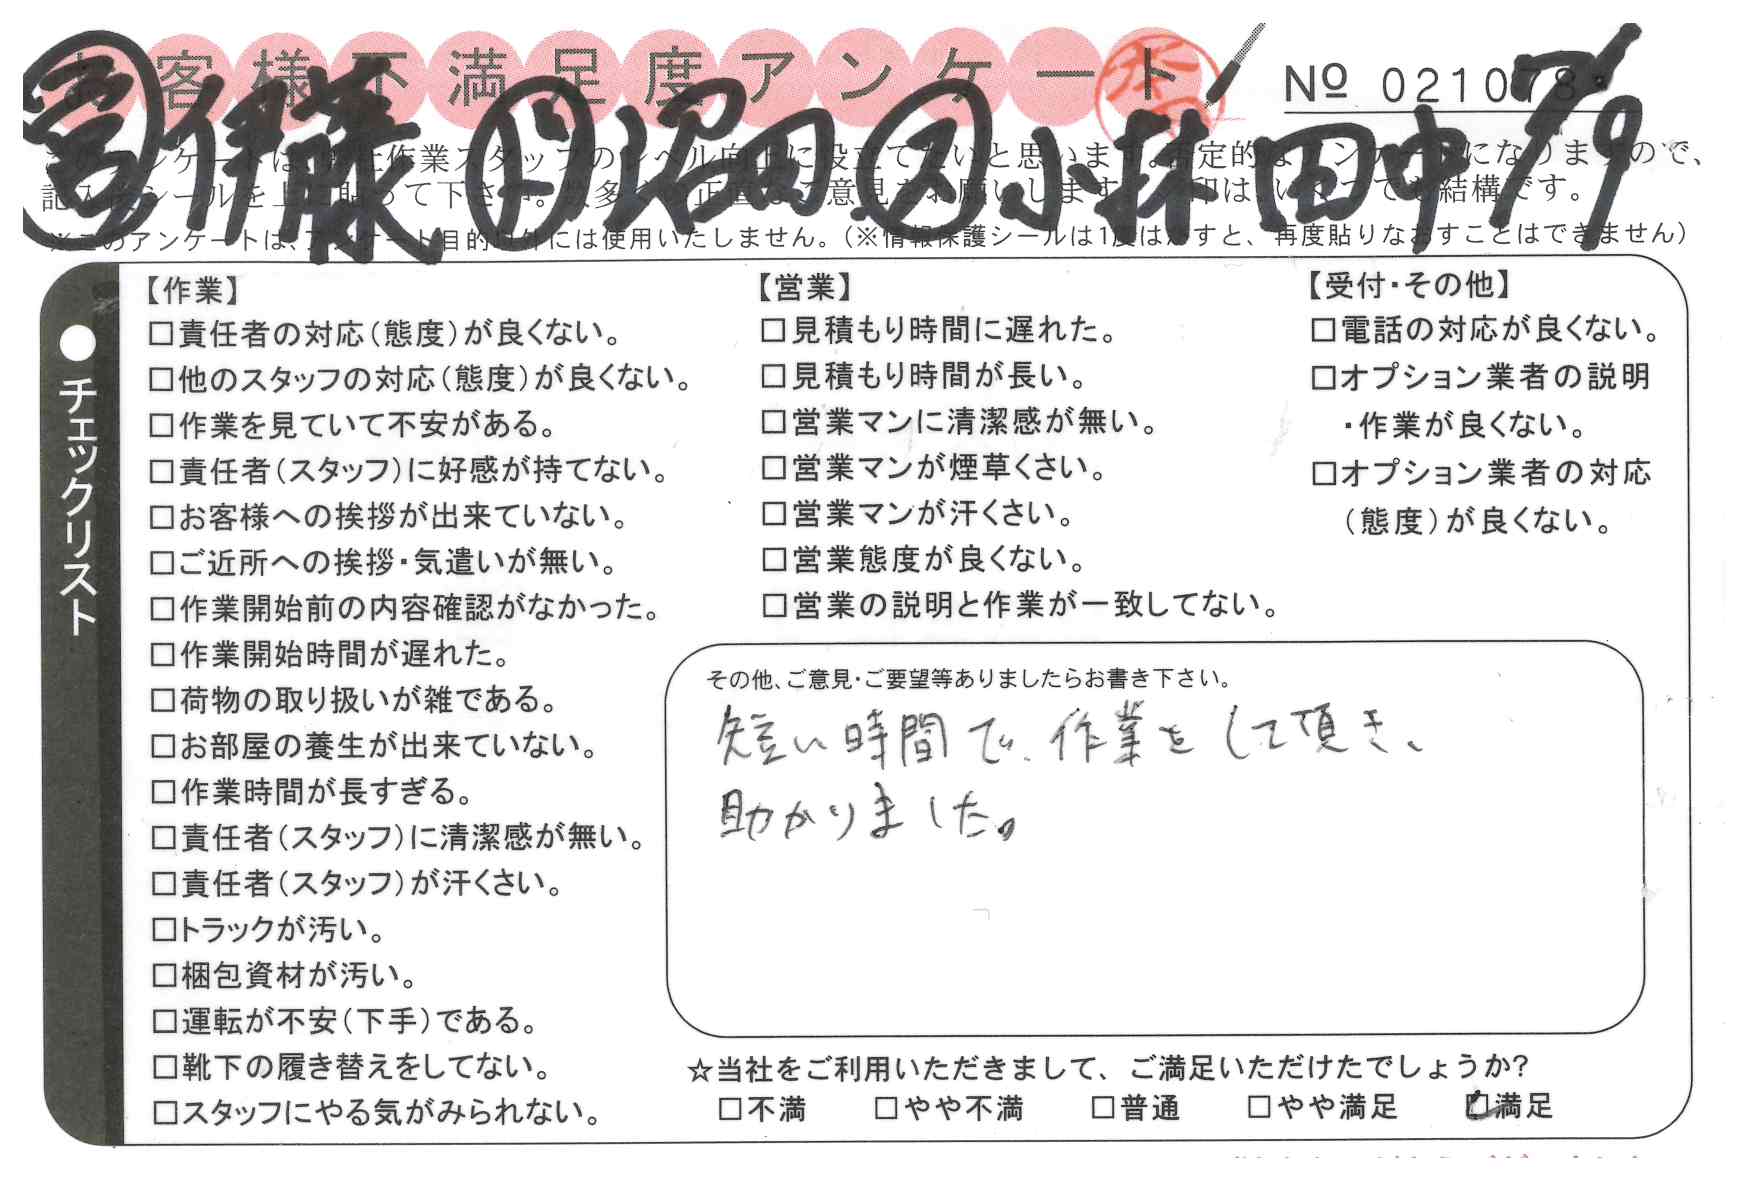 お客様不満足度アンケート
№ 021078
営 伊藤 ド 沼田 ス 小林 田中 7/9
※このアンケートは、アンケート目的以外には使用いたしません。(※情報保護シールは1度はがすと、再度貼りなおすことはできません)
●チェックリスト
【作業】
□責任者の対応(態度)が良くない。
□他のスタッフの対応(態度)が良くない。
□作業を見ていて不安がある。
□責任者(スタッフ)に好感が持てない。
□お客様への挨拶が出来ていない。
□ご近所への挨拶・気遣いが無い。
□作業開始前の内容確認がなかった。
□作業開始時間が遅れた。
□荷物の取り扱いが雑である。
□お部屋の養生が出来ていない。
□作業時間が長すぎる。
□責任者(スタッフ)に清潔感が無い。
□責任者(スタッフ)が汗くさい。
□トラックが汚い。
□梱包資材が汚い。
□運転が不安(下手)である。
□靴下の履き替えをしてない。
□スタッフにやる気がみられない。
【営業】
□見積もり時間に遅れた。
□見積もり時間が長い。
□営業マンに清潔感が無い。
□営業マンが煙草くさい。
□営業マンが汗くさい。
□営業態度が良くない。
□営業の説明と作業が一致してない。
【受付・その他】
□電話の対応が良くない。
□オプション業者の説明
・作業が良くない。
□オプション業者の対応
(態度)が良くない。
その他、ご意見・ご要望等ありましたらお書き下さい。
短い時間で、作業をして頂き、
助かりました。
☆当社をご利用いただきまして、ご満足いただけたでしょうか?
□不満 □やや不満 □普通 □やや満足 ☑満足